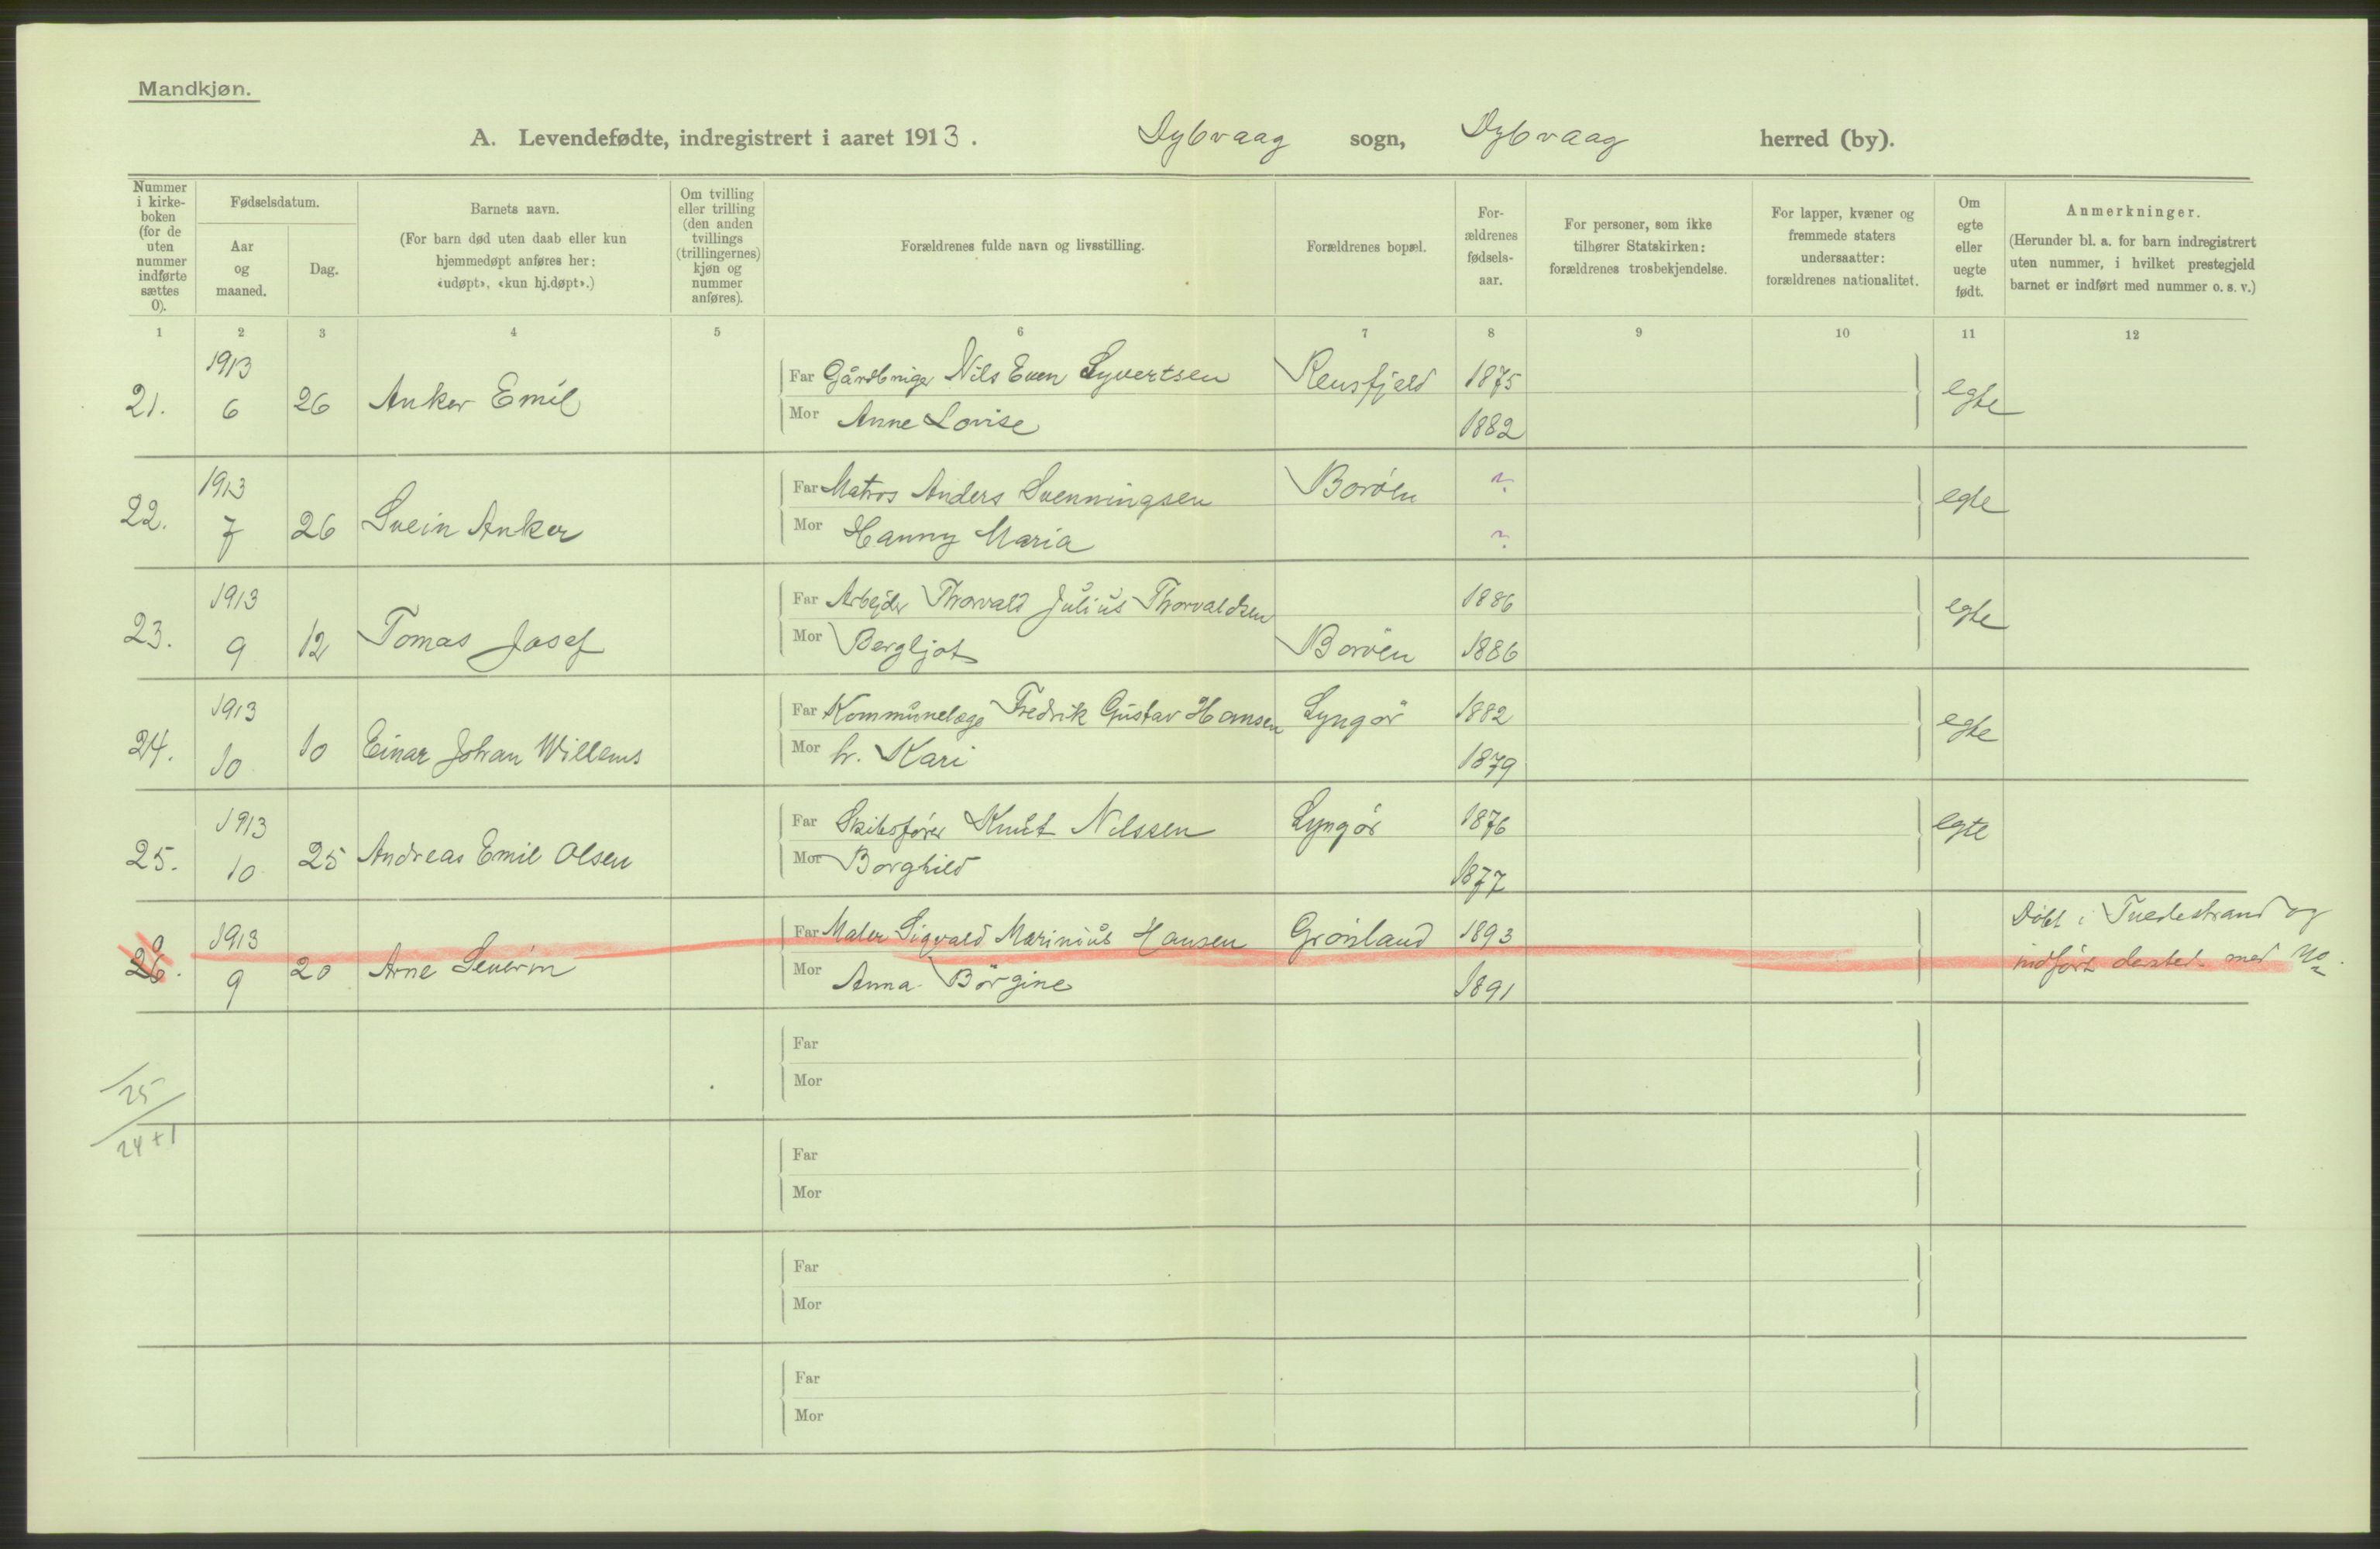 Mandkjøn.
A. Levendefødte, indregistrert i aaret 1913. Dybvaag sogn, Dybvaag herred (by).
Nummer i kirke-boken (for de uten nummer indførte sættes 0).
Fødselsdatum.
Aar og maaned.
Dag.
Barnets navn.
(For barn død uten daab eller kun hjemmedøpt anføres her: «udøpt», «kun hj.døpt».)
Om tvilling eller trilling (den anden tvillings (trillingernes) kjøn og nummer anføres).
Forældrenes fulde navn og livsstilling.
Forældrenes bopæl.
For-ældrenes fødsels-aar.
For personer, som ikke tilhører Statskirken: forældrenes trosbekjendelse.
For lapper, kvæner og fremmede staters undersaatter: forældrenes nationalitet.
Om egte eller uegte født.
Anmerkninger.
(Herunder bl. a. for barn indregistrert uten nummer, i hvilket prestegjeld barnet er indført med nummer o. s. v.)
1 2 3 4 5 6 7 8 9 10 11 12
21. 1913 6 26 Anker Emil Far Gårdbruger Nils Even Syvertsen Rensfjeld 1875 egte
Mor Anne Lovise 1882
22. 1913 7 26 Svein Anker Far Matros Anders Svenningsen Borøen ? egte
Mor Hanny Maria ?
23. 1913 9 12 Tomas Josef Far Arbejder Thorvald Julius Thorvaldsen 1886 egte
Mor Bergljot Borøen 1886
24. 1913 10 10 Einar Johan Willems Far Kommunelæge Fredrik Gustav Hansen Lyngør 1882 egte
Mor h. Kari 1879
25. 1913 10 25 Andreas Emil Olsen Far Skibsfører Knut Nilssen Lyngør 1876 egte
Mor Borghild 1877
0
26. 1913 9 20 Arne Severin Far Maler Sigvald Marinius Hansen Grønland 1893 Døbt i Tvedestrand og
Mor Anna Børgine 1891 indført dersted med No.
Far
Mor
25
24+1
Far
Mor
Far
Mor
Far
Mor